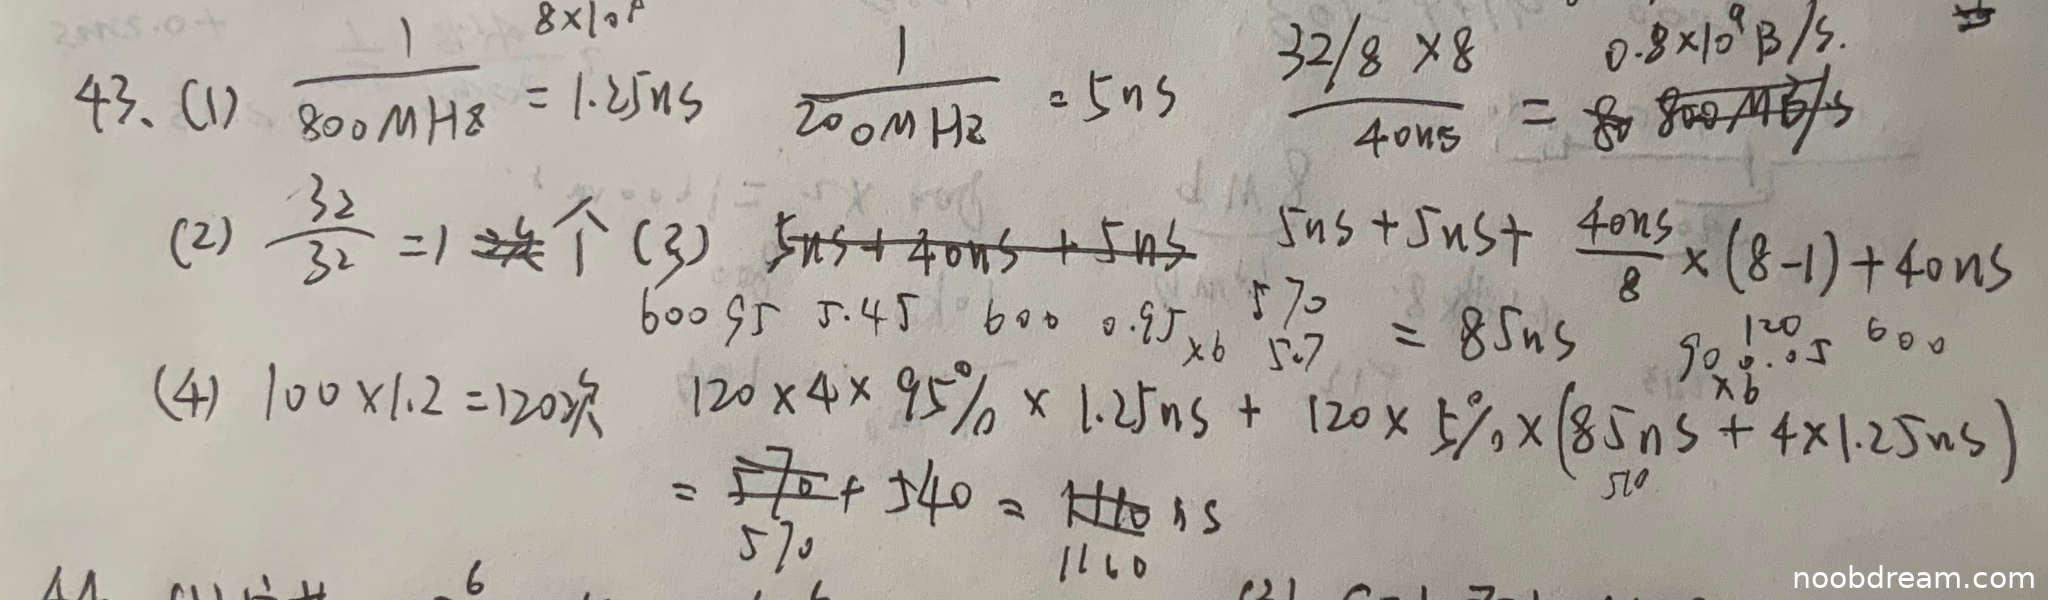 8×10⁸
43、(1) 1/800MHz = 1.25ns 1/200MHz = 5ns (32/8 ×8)/40ns = 0.8×10⁹B/s.
80 800MB/s
(2) 32/32 = 1 个 (3) 5ns + 40ns + 5ns 5ns + 5ns + 40ns/8 × (8-1) + 40ns
= 85ns
600 95 5.45 600 0.95 ×6 570 5.7
120 90 0.05 ×6 600
(4) 100×1.2 = 120次 120×4×95% × 1.25ns + 120× 5% × (85ns + 4×1.25ns)
510
= 570 + 540 = 1110 ns
570 1110
6
noobdream.com